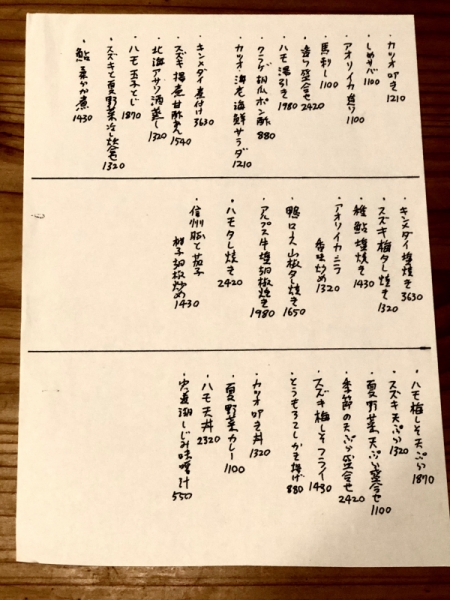 ・カツオ叩き 1210
・しめサバ 1100
・アオリイカ造り 1100
・馬刺し 1100
・造り盛合せ 2420
・ハモ湯引き 1980
・クラゲ胡瓜ポン酢 880
・カツオ海老海鮮サラダ 1210
・キンメダイ煮付け 3630
・スズキ揚煮甘酢あん 1540
・北海アサリ酒蒸し 1320
・ハモ玉子とじ 1870
・スズキと夏野菜冷し炊合せ 1320
・鮎柔か煮 1430
・キンメダイ塩焼き 3630
・スズキ梅タレ焼き 1320
・稚鮎塩焼き 1430
・アオリイカニラ
香味炒め 1320
・鴨ロース山椒タレ焼き 1650
・アルプス牛塩胡椒焼き 1980
・ハモタレ焼き 2420
・信州豚と茄子
柚子胡椒炒め 1430
・ハモ梅しそ天ぷら 1870
・スズキ天ぷら 1320
・夏野菜天ぷら盛合せ 1100
・季節の天ぷら盛合せ 2420
・スズキ梅しそフライ 1430
・とうもろこしかき揚げ 880
・カツオ叩き丼 1320
・夏野菜カレー 1100
・ハモ天丼 2320
・宍道湖しじみ味噌汁 550